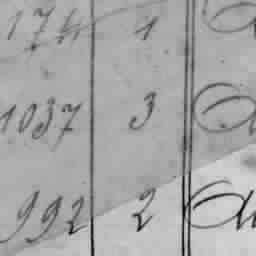 174 1
1037 3
992 2